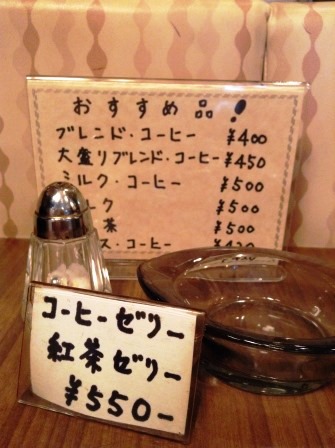 おすすめ品!
ブレンド・コーヒー ¥400
大盛りブレンド・コーヒー ¥450
ミルク・コーヒー ¥500
ーク ¥500
茶 ¥500
ス・コーヒー
コーヒーゼリー
紅茶ゼリー
¥550-